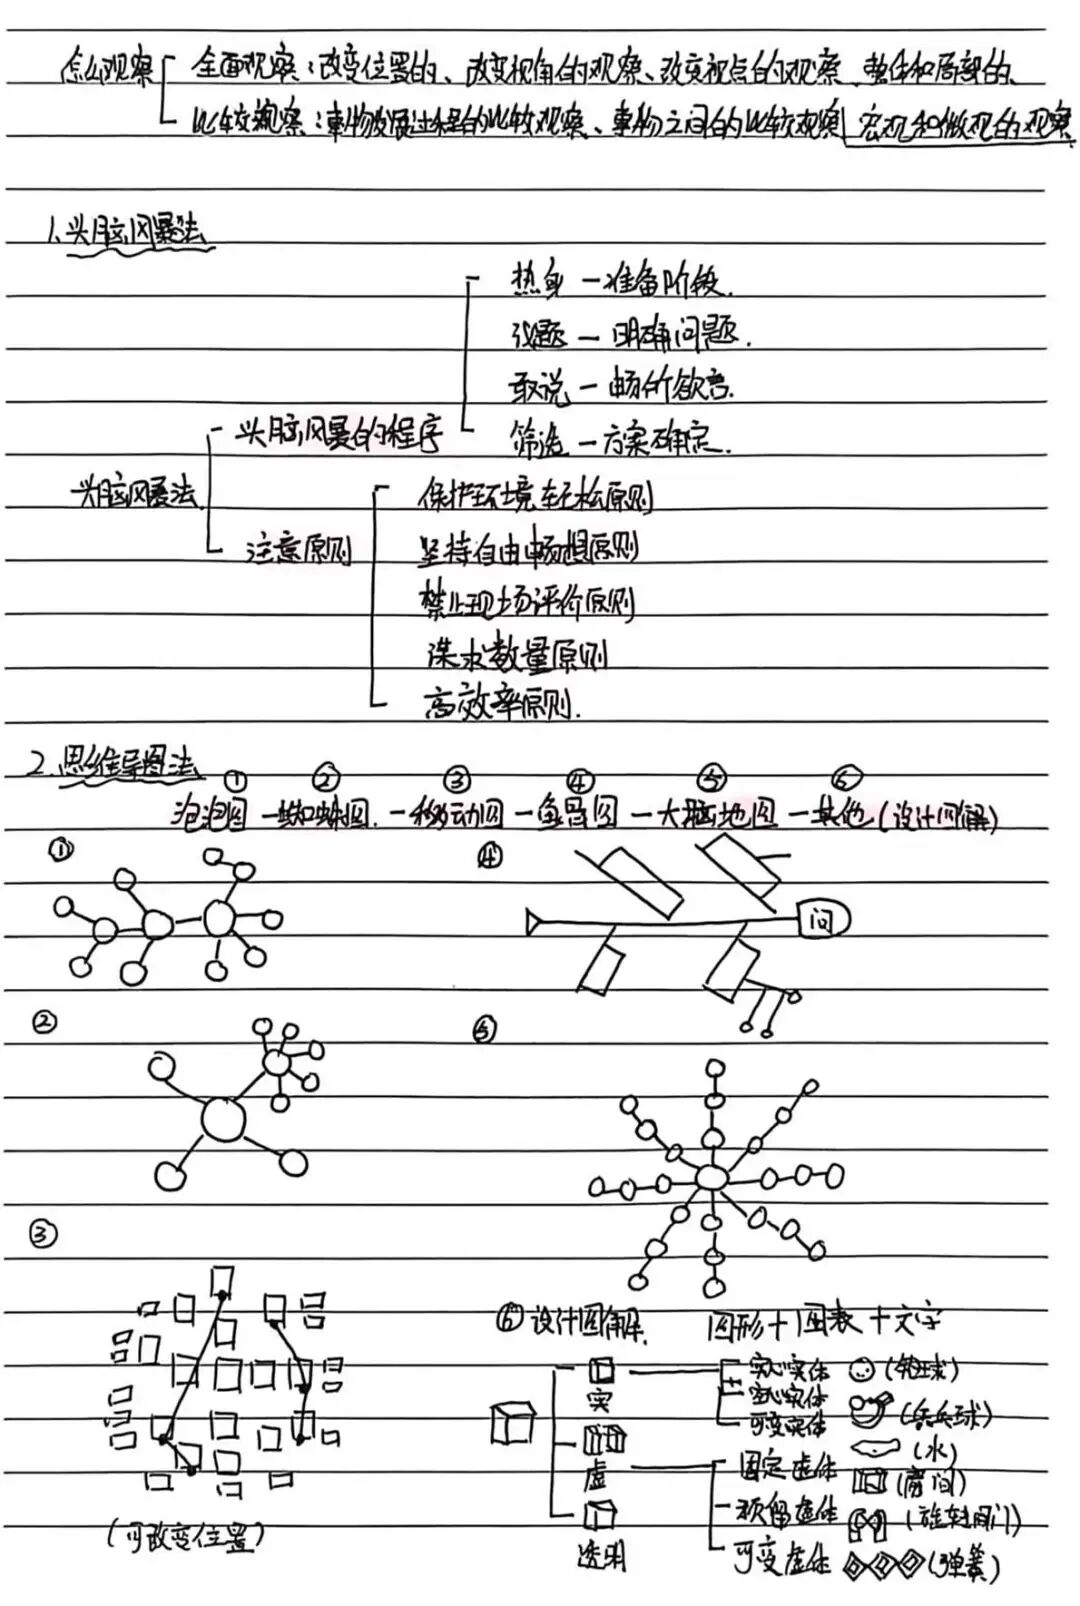 怎么观察 全面观察：改变位置的、改变视角的观察、改变视点的观察、整体和局部的、
比较观察：事物发展过程的比较观察、事物之间的比较观察 宏观和微观的观察
1.头脑风暴法
热身—准备阶段.
议题—明确问题.
敢说—畅所欲言.
头脑风暴的程序 筛选—方案确定.
头脑风暴法 保护环境轻松原则
注意原则 坚持自由畅想原则
禁止现场评价原则
谋求数量原则
高效率原则.
2.思维导图法
① ② ③ ④ ⑤ ⑥
泡泡图—蜘蛛图.—移动图—鱼骨图—大脑地图—其他(设计图解)
① ④
问
② ⑤
③
⑥设计图解. 图形+图表+文字
实 实心实体 (铅球)
空心实体 (乒乓球)
可变实体 (水)
虚 固定虚体 (房间)
预留虚体 (旋转门)
透明 可变虚体 (弹簧)
(可改变位置)